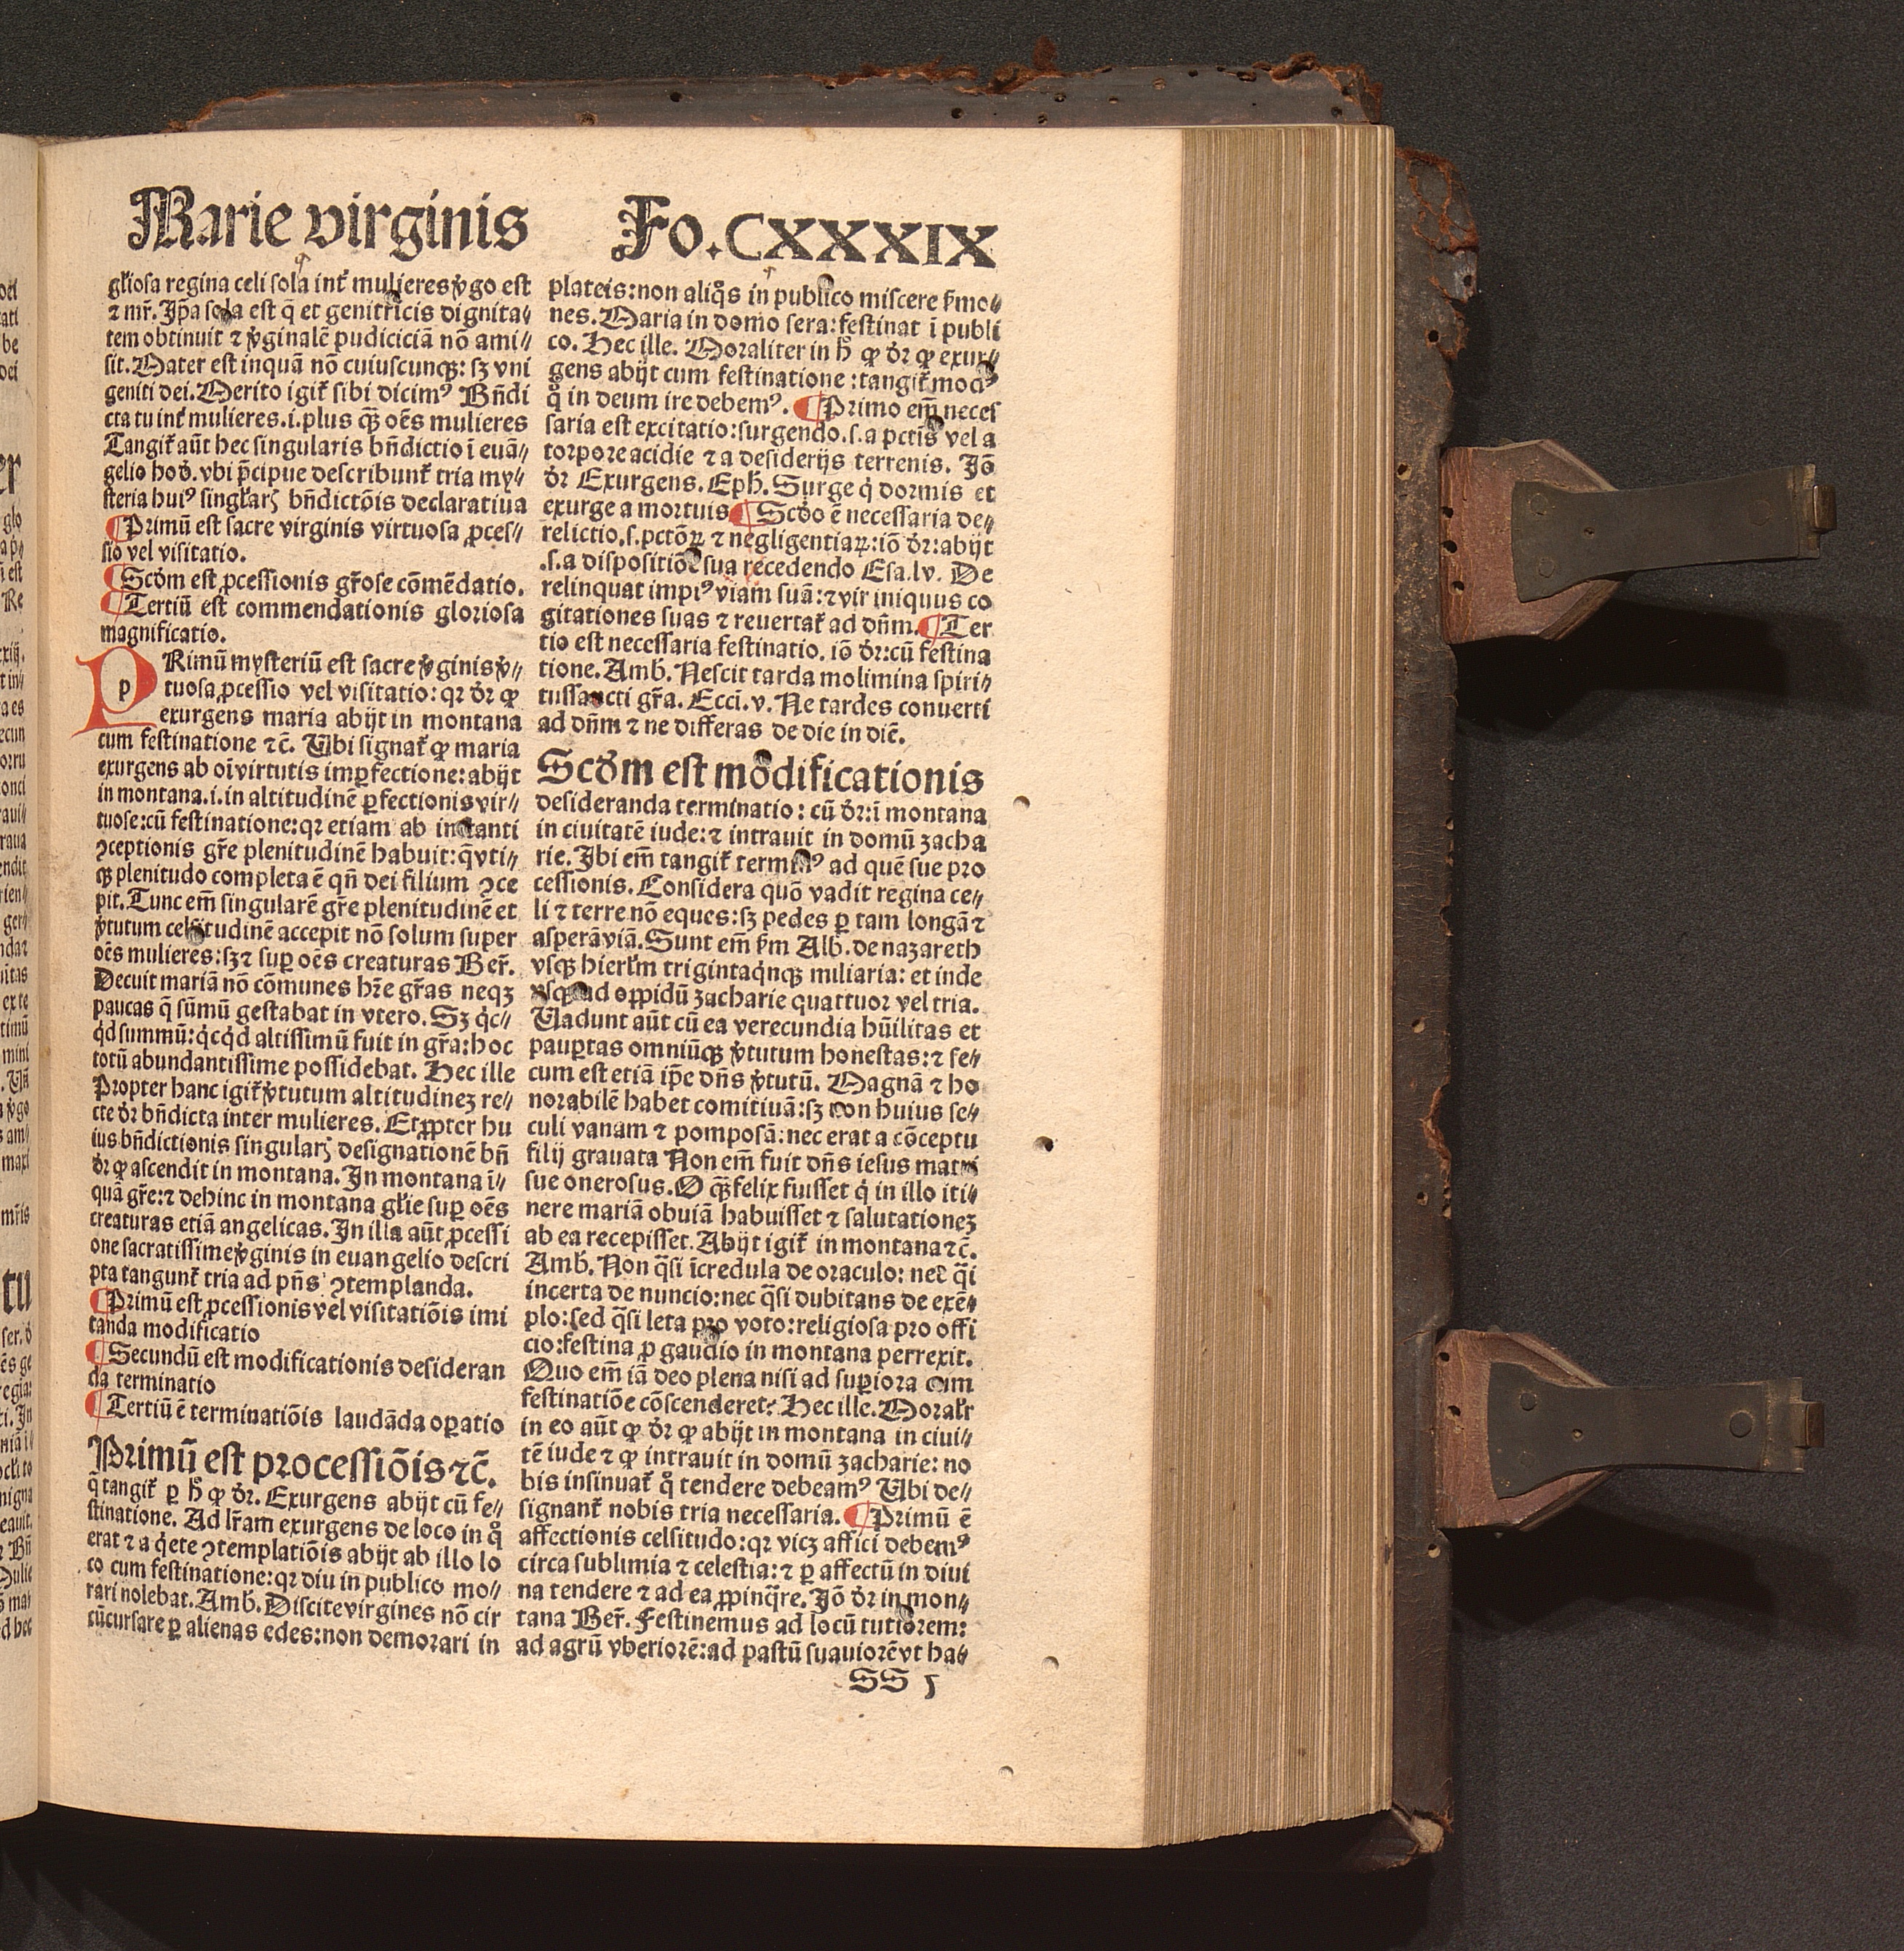 Marie virginis
Fo. CXXXIX
gl̄iosa regina celi sola int̄ mulieres v̓go est
⁊ mr̄. Ip̄a sola est q̄ et genitricis dignita⸗
tem obtinuit ⁊ v̓ginalē pudiciciā nō ami⸗
sit. Mater est inquā nō cuiuscunqꝫ: sꝫ vni
geniti dei. Merito igit̄ sibi dicimꝰ Bn̄di
cta tu int̄ mulieres .i. plus qꝫ̄ oēs mulieres
Tangit̄ aūt hec singularis bn̄dictio ī euā⸗
gelio hod̓. vbi p̄cipue describunt̄ tria my⸗
steria huiꝰ singl̄arꝫ bn̄dictōis declaratiua
¶ Primū est sacre virginis virtuosa ꝓces⸗
sio vel visitatio.
¶ Scd̓m est ꝓcessionis gr̄ose cōmēdatio.
¶ Tertiū est commendationis gloriosa
magnificatio.
PRimū mysteriū est sacre v̓ginis v̓⸗
tuosa ꝓcessio vel visitatio: qꝛ dr̄ ꝙ
exurgens maria abijt in montana
cum festinatione ⁊c̄. Ubi signat̄ ꝙ maria
exurgens ab oī virtutis imꝑfectione: abijt
in montana .i. in altitudinē ꝑfectionis vir⸗
tuose: cū festinatione: qꝛ etiam ab instanti
ꝯceptionis gr̄e plenitudinē habuit: q̄ vti⸗
qꝫ plenitudo completa ē qn̄ dei filium ꝯce
pit. Tunc em̄ singularē gr̄e plenitudinē et
v̓tutum celsitudinē accepit nō solum super
oēs mulieres: sꝫ ⁊ suꝑ oēs creaturas Ber̄.
Decuit mariā nō cōmunes hr̄e gr̄as neqꝫ
paucas q̄ sūmū gestabat in vtero. Sꝫ q̇c⸗
q̇d summū: q̇cq̇d altissimū fuit in gr̄a: hoc
totū abundantissime possidebat. Hec ille
Propter hanc igit̄ v̓tutum altitudinez re⸗
cte dr̄ bn̄dicta inter mulieres. Et ꝓpter hu
ius bn̄dictionis singularꝫ designationē bn̄
dr̄ ꝙ ascendit in montana. In montana ī⸗
quā gr̄e: ⁊ dehinc in montana gl̄ie suꝑ oēs
creaturas etiā angelicas. In illa aūt ꝓcessi
one sacratissime v̓ginis in euangelio descri
pta tangunt̄ tria ad pn̄s ꝯtemplanda.
¶ Primū est ꝓcessionis vel visitatiōis imi
tanda modificatio
¶ Secundū est modificationis desideran
da terminatio
¶ Tertiū ē terminatiōis laudāda oꝑatio
Primū est processiōis ⁊c̄.
q̄ tangit̄ ꝑ h̊ ꝙ dr̄. Exurgens abijt cū fe⸗
stinatione. Ad lr̄am exurgens de loco in q̊
erat ⁊ a q̇ete ꝯtemplatiōis abijt ab illo lo
co cum festinatione: qꝛ diu in publico mo⸗
rari nolebat. Amb. Discite virgines nō cir
cūcursare ꝑ alienas edes: non demorari in
plateis: non aliq̊s in publico miscere s̓mo⸗
nes. Maria in domo sera: festinat ī publi
co. Hec ille. Moraliter in h̊ ꝙ dr̄ ꝙ exur⸗
gens abijt cum festinatione: tangit̄ modꝰ
q̊ in deum ire debemꝰ. ¶ Primo em̄ neces
saria est excitatio: surgendo .s. a pctīs vel a
torpore acidie ⁊ a desiderijs terrenis. Iō
dr̄ Exurgens. Eph. Surge q̇ dormis et
exurge a mortuis ¶ Scd̓o ē necessaria de⸗
relictio .s. pctōꝝ ⁊ negligentiaꝝ: iō dr̄: abijt
.s. a dispositiōe sua recedendo Esa. lv. De
relinquat impiꝰ viam suā: ⁊ vir iniquus co
gitationes suas ⁊ reuertat̄ ad dn̄m. ¶ Ter
tio est necessaria festinatio. iō dr̄: cū festina
tione. Amb. Nescit tarda molimina spiri⸗
tussancti gr̄a. Ecci. v. Ne tardes conuerti
ad dn̄m ⁊ ne differas de die in diē.
Scd̓m est modificationis
desideranda terminatio: cū dr̄: ī montana
in ciuitatē iude: ⁊ intrauit in domū zacha
rie. Ibi em̄ tangit̄ terminꝰ ad quē sue pro
cessionis. Considera quō vadit regina ce⸗
li ⁊ terre nō eques: sꝫ pedes ꝑ tam longā ⁊
asperā viā. Sunt em̄ s̓m Alb. de nazareth
vsqꝫ hierl̄m trigintaq̇nqꝫ miliaria: et inde
vsqꝫ ad oppidū zacharie quattuor vel tria.
Uadunt aūt cū ea verecundia hūilitas et
pauꝑtas omniūqꝫ v̓tutum honestas: ⁊ se⸗
cum est etiā ip̄e dn̄s v̓tutū. Magnā ⁊ ho
norabilē habet comitiuā: sꝫ non huius se⸗
culi vanam ⁊ pomposā: nec erat a cōceptu
filij grauata Non em̄ fuit dn̄s iesus matri
sue onerosus. O qꝫ̄ felix fuisset q̇ in illo iti⸗
nere mariā obuiā habuisset ⁊ salutationez
ab ea recepisset. Abijt igit̄ in montana ⁊c̄.
Amb. Non q̄si īcredula de oraculo: nec q̄i
incerta de nuncio: nec q̄si dubitans de exē⸗
plo: sed q̄si leta pro voto: religiosa pro offi
cio: festina ꝓ gaudio in montana perrexit.
Quo em̄ iā deo plena nisi ad suꝑiora cum
festinatiōe cōscenderet? Hec ille. Moralr̄
in eo aūt ꝙ dr̄ ꝙ abijt in montana in ciui⸗
tē iude ⁊ ꝙ intrauit in domū zacharie: no
bis insinuat̄ q̊ tendere debeamꝰ Ubi de⸗
signant̄ nobis tria necessaria. ¶ Primū ē
affectionis celsitudo: qꝛ vicꝫ affici debemꝰ
circa sublimia ⁊ celestia: ⁊ ꝑ affectū in diui
na tendere ⁊ ad ea ꝓpinq̄re. Iō dr̄ in mon⸗
tana Ber̄. Festinemus ad locū tutiorem:
ad agrū vberiorē: ad pastū suauiorē vt ha⸗
SS 1